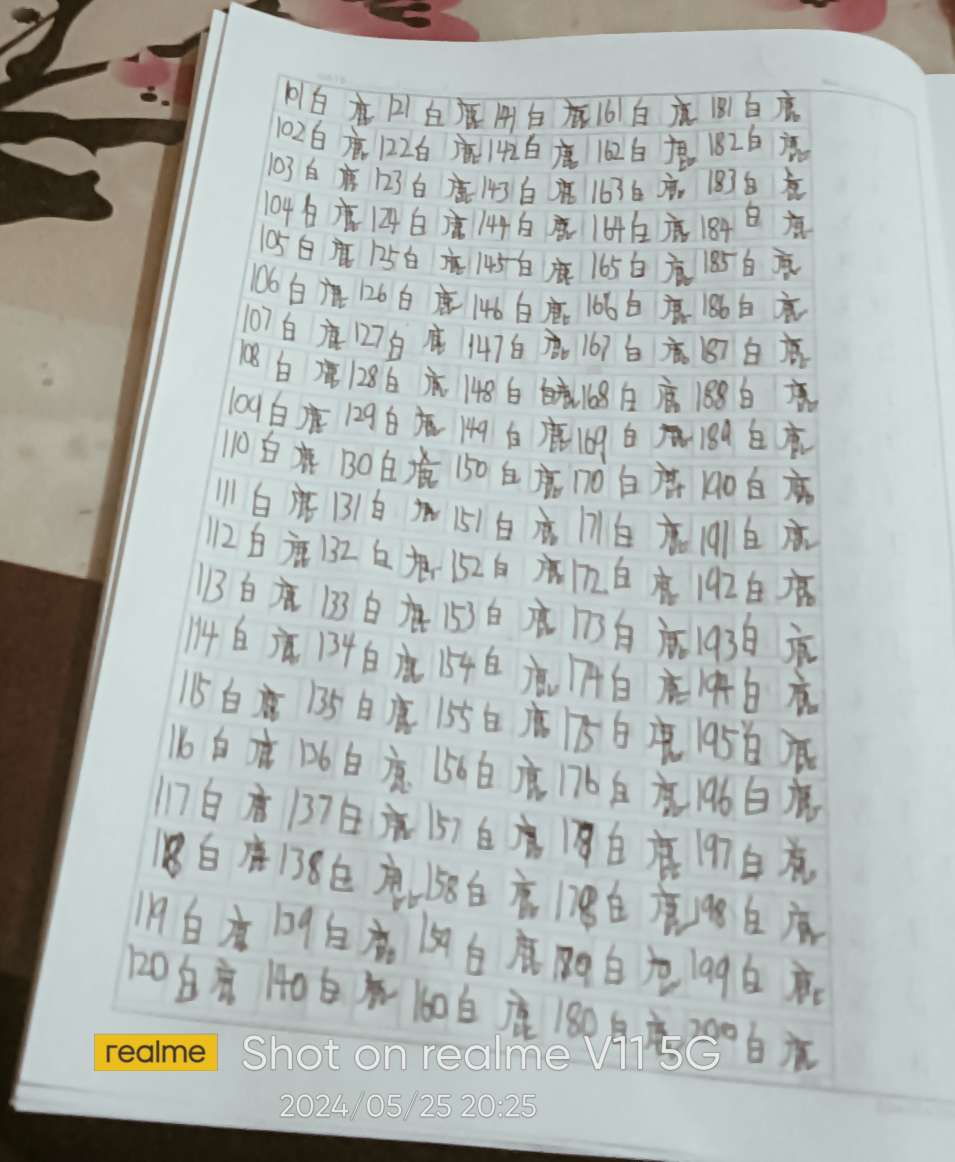 101白鹿 121白鹿 141白鹿 161白鹿 181白鹿
102白鹿 122白鹿 142白鹿 162白鹿 182白鹿
103白鹿 123白鹿 143白鹿 163白鹿 183白鹿
104白鹿 124白鹿 144白鹿 164白鹿 184白鹿
105白鹿 125白鹿 145白鹿 165白鹿 185白鹿
106白鹿 126白鹿 146白鹿 166白鹿 186白鹿
107白鹿 127白鹿 147白鹿 167白鹿 187白鹿
108白鹿 128白鹿 148白鹿 168白鹿 188白鹿
109白鹿 129白鹿 149白鹿 169白鹿 189白鹿
110白鹿 130白鹿 150白鹿 170白鹿 190白鹿
111白鹿 131白鹿 151白鹿 171白鹿 191白鹿
112白鹿 132白鹿 152白鹿 172白鹿 192白鹿
113白鹿 133白鹿 153白鹿 173白鹿 193白鹿
114白鹿 134白鹿 154白鹿 174白鹿 194白鹿
115白鹿 135白鹿 155白鹿 175白鹿 195白鹿
116白鹿 136白鹿 156白鹿 176白鹿 196白鹿
117白鹿 137白鹿 157白鹿 177白鹿 197白鹿
118白鹿 138白鹿 158白鹿 178白鹿 198白鹿
119白鹿 139白鹿 159白鹿 179白鹿 199白鹿
120白鹿 140白鹿 160白鹿 180白鹿 200白鹿
realme Shot on realme V11 5G
2024/05/25 20:25